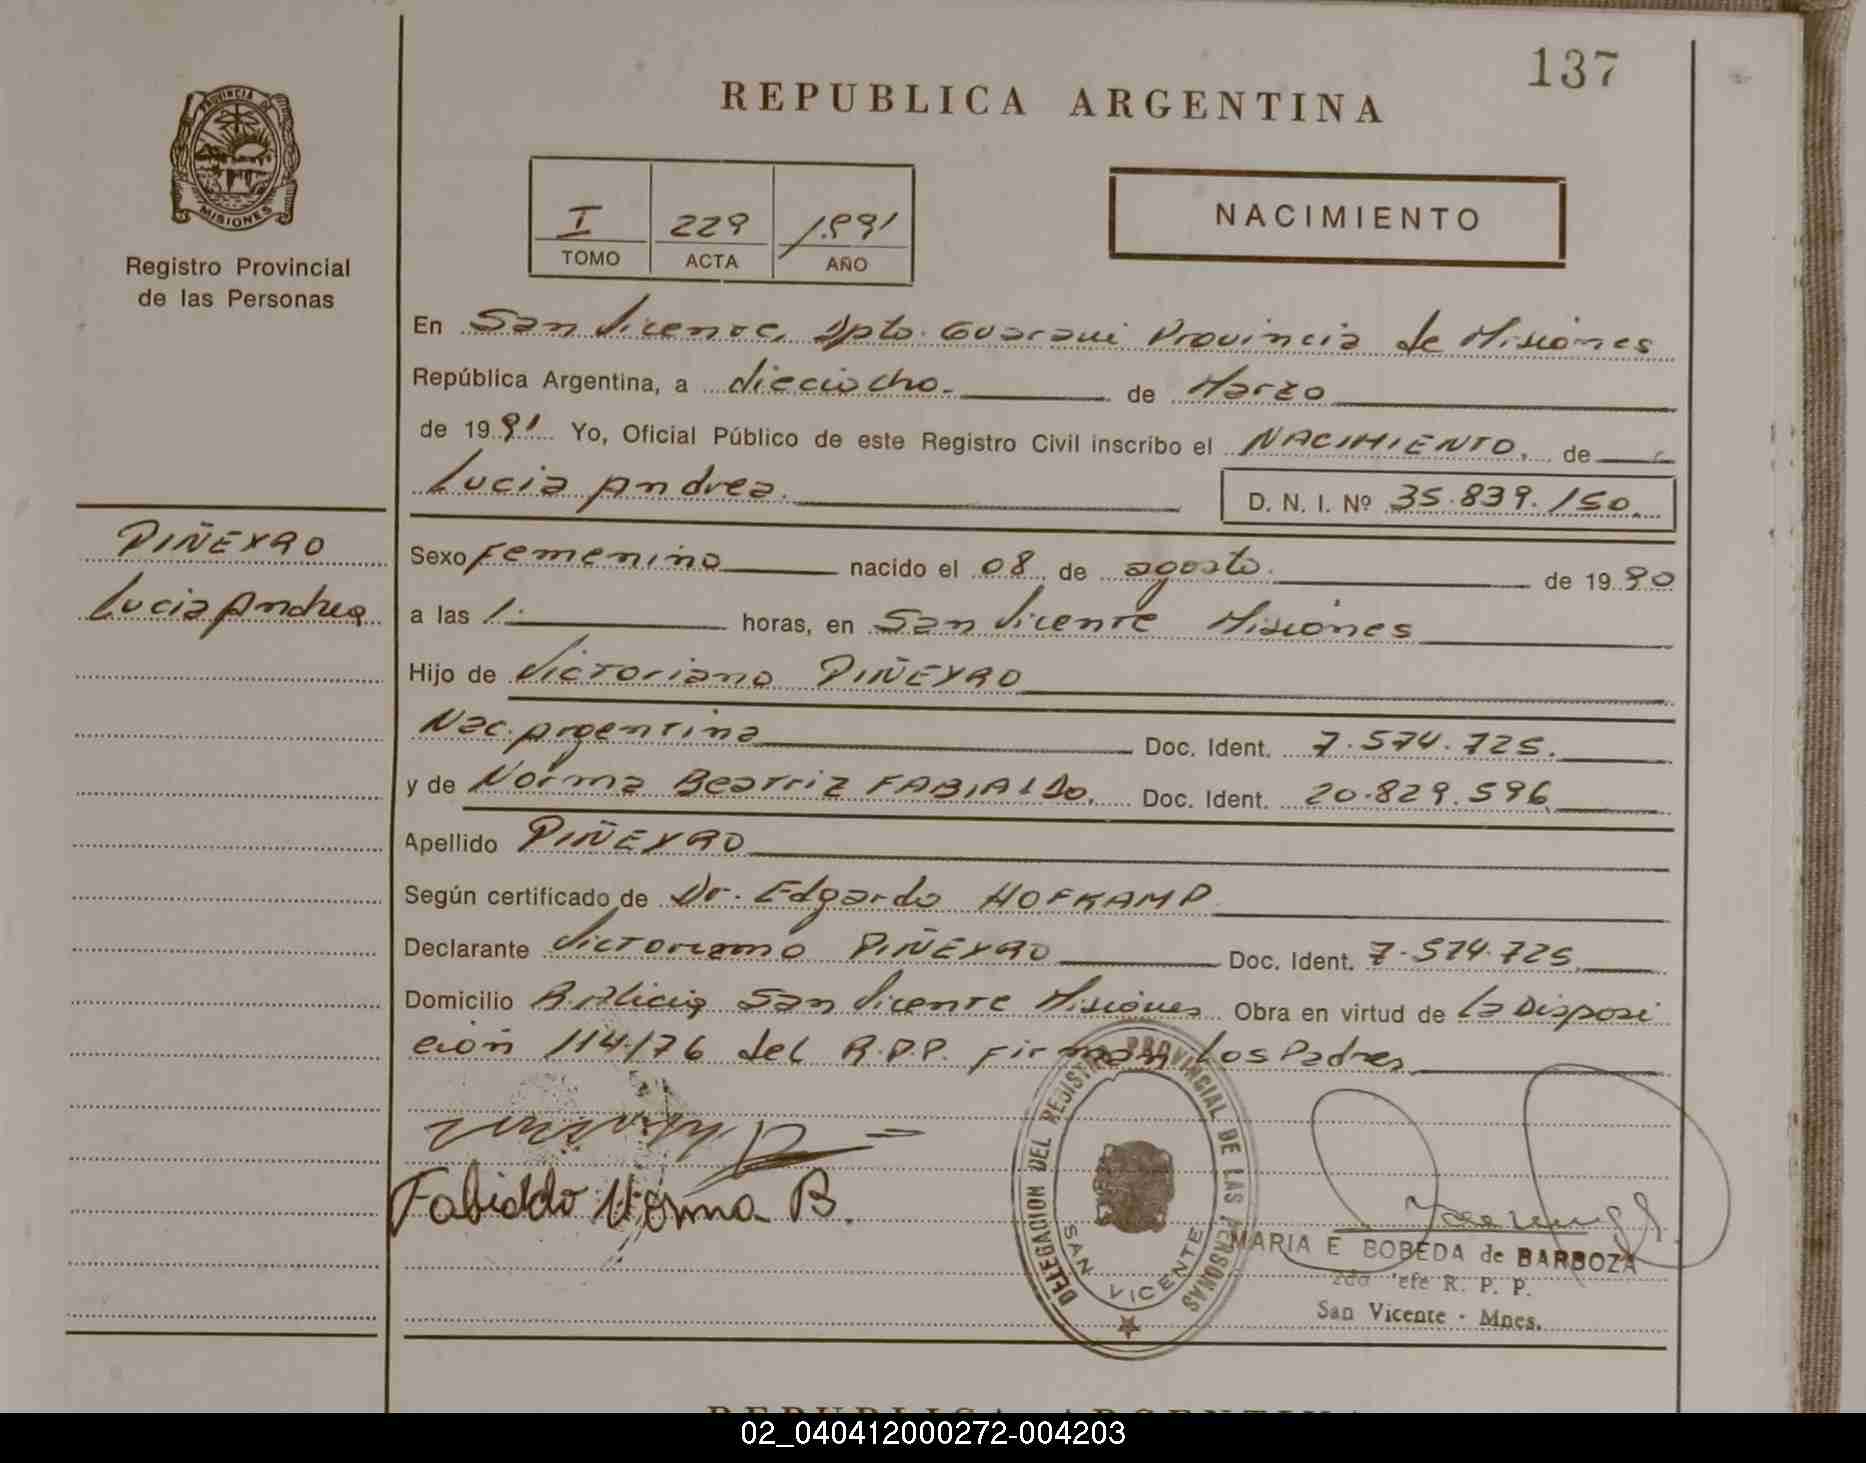 137
REPUBLICA ARGENTINA
PROVINCIA DE
MISIONES
Registro Provincial
de las Personas
I 229 1.991
TOMO ACTA AÑO
NACIMIENTO
En San Vicente, Dpto. Guarani Provincia de Misiones
República Argentina, a dieciocho. de Marzo
de 1991 Yo, Oficial Público de este Registro Civil inscribo el NACIMIENTO, de
Lucia Andrea. D. N. I. Nº 35.839.150.
PIÑEYRO
Lucia Andrea
Sexo Femenino nacido el 08 de agosto. de 1990
a las 1. horas, en San Vicente Misiones
Hijo de Victoriano PIÑEYRO
Nac. Argentina Doc. Ident. 7.574.725.
y de Norma Beatriz Doc. Ident. 20.829.596
Apellido PIÑEYRO
Según certificado de Dr. Edgardo HOFKAMP
Declarante Victoriano PIÑEYRO Doc. Ident. 7.574.725
Domicilio B. Alicia San Vicente Misiones Obra en virtud de La Disposi
ción 114/76 del R.P.P. Firman Los Padres
Norma B.
DELEGACION DEL REGISTRO PROVINCIAL DE LAS PERSONAS
SAN VICENTE
MARIA E BOBEDA de BARBOZA
2do Jefe R. P. P.
San Vicente - Mnes.
REPUBLICA ARGENTINA
02_040412000272-004203